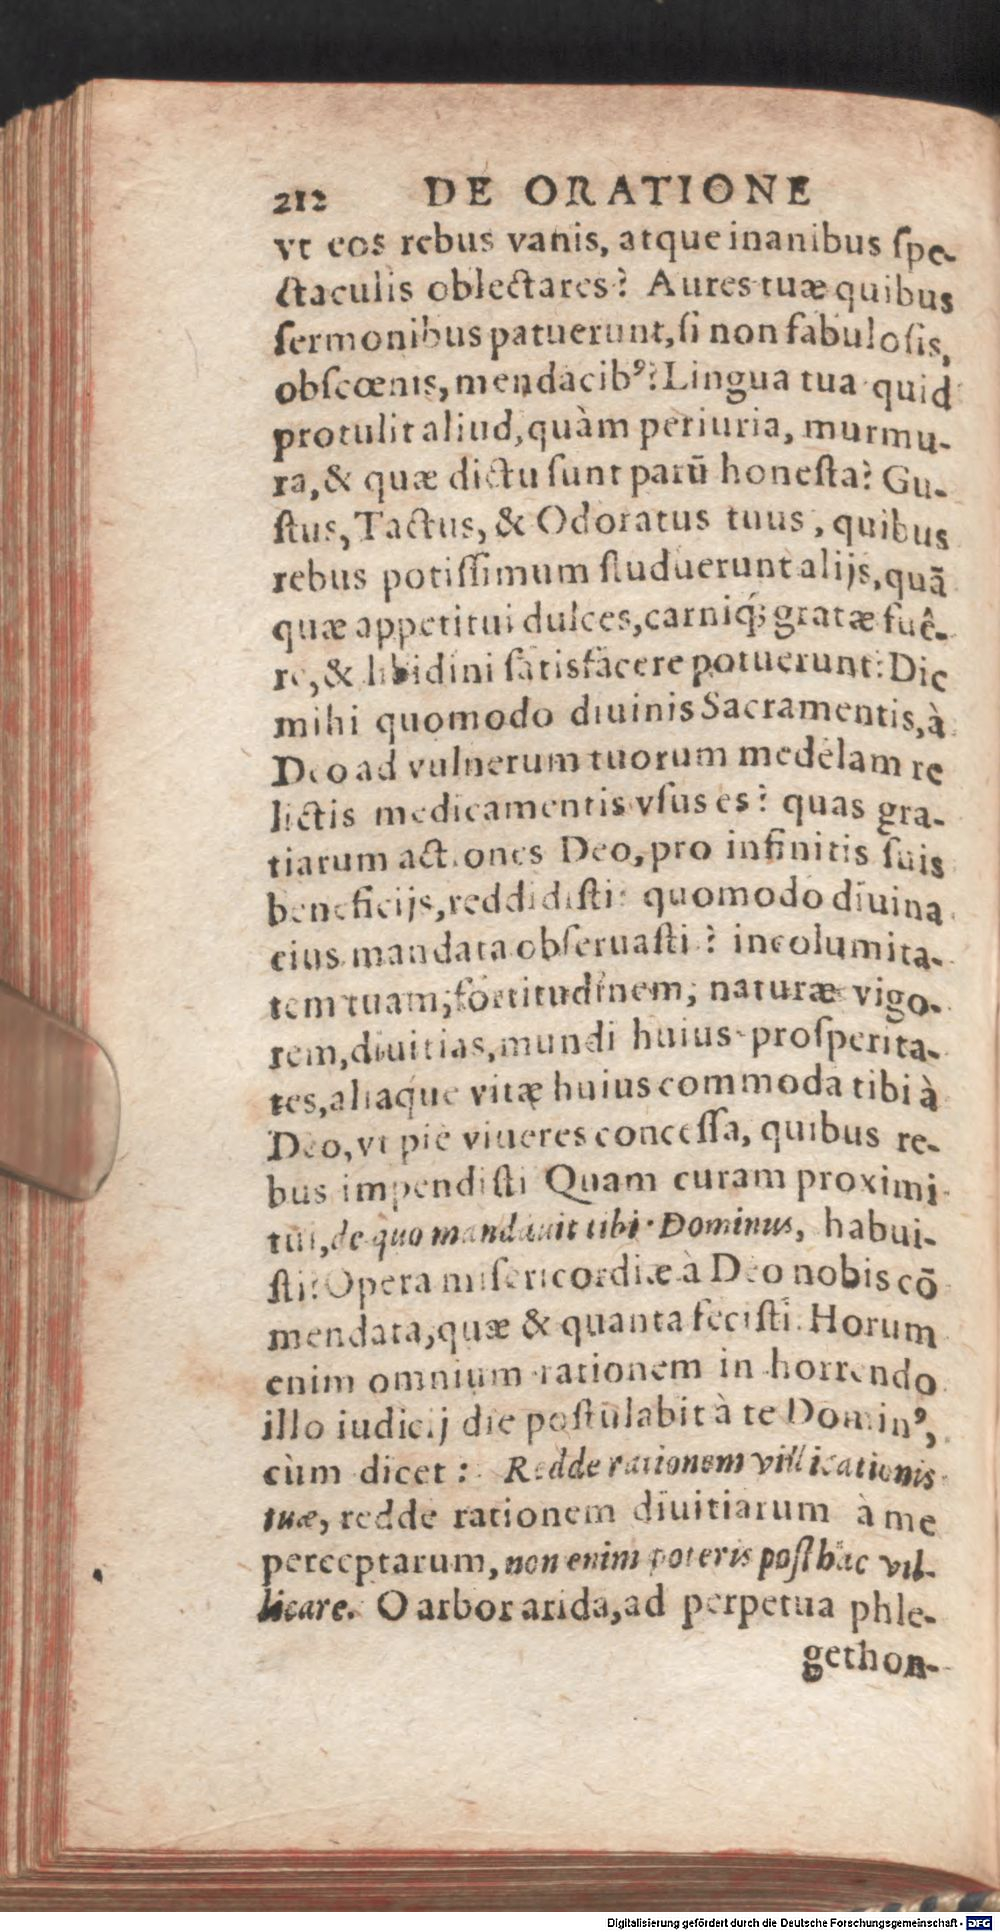 212 DE ORATIONE
vt eos rebus vanis, atque inanibus ſpe-
ctaculis oblectares? Aures tuæ quibus
ſermonibus patuerunt, ſi non fabuloſis,
obſcœnis, mendacibꝰ? Lingua tua quid
protulit aliud, quàm periuria, murmu-
ra, & quæ dictu ſunt parū honeſta? Gu-
ſtus, Tactus, & Odoratus tuus, quibus
rebus potiſſimum ſtuduerunt alijs, quā
quæ appetitui dulces, carniq́; gratæ fuê-
re, & libidini ſatisfacere potuerunt? Dic
mihi quomodo diuinis Sacramentis, à
Deo ad vulnerum tuorum medelam re
lictis medicamentis vſus es? quas gra-
tiarum actiones Deo, pro infinitis ſuis
beneficijs, reddidiſti? quomodo diuina
eius mandata obſeruaſti? incolumita-
tem tuam, fortitudinem, naturæ vigo-
rem, diuitias, mundi huius proſperita-
tes, aliaque vitæ huius commoda tibi à
Deo, vt piè viueres conceſſa, quibus re-
bus impendiſti Quam curam proximi
tui, de quo mandauit tibi Dominus, habui-
ſti? Opera miſericordiæ à Deo nobis cō
mendata, quæ & quanta feciſti. Horum
enim omnium rationem in horrendo
illo iudicij die poſtulabit à te Dominꝰ,
cùm dicet: Redde rationem villicationis
tuæ, redde rationem diuitiarum à me
perceptarum, non enim poteris poſthac vil-
licare. O arbor arida, ad perpetua phle-
gethon-
Digitalisierung gefördert durch die Deutsche Forschungsgemeinschaft - DFG